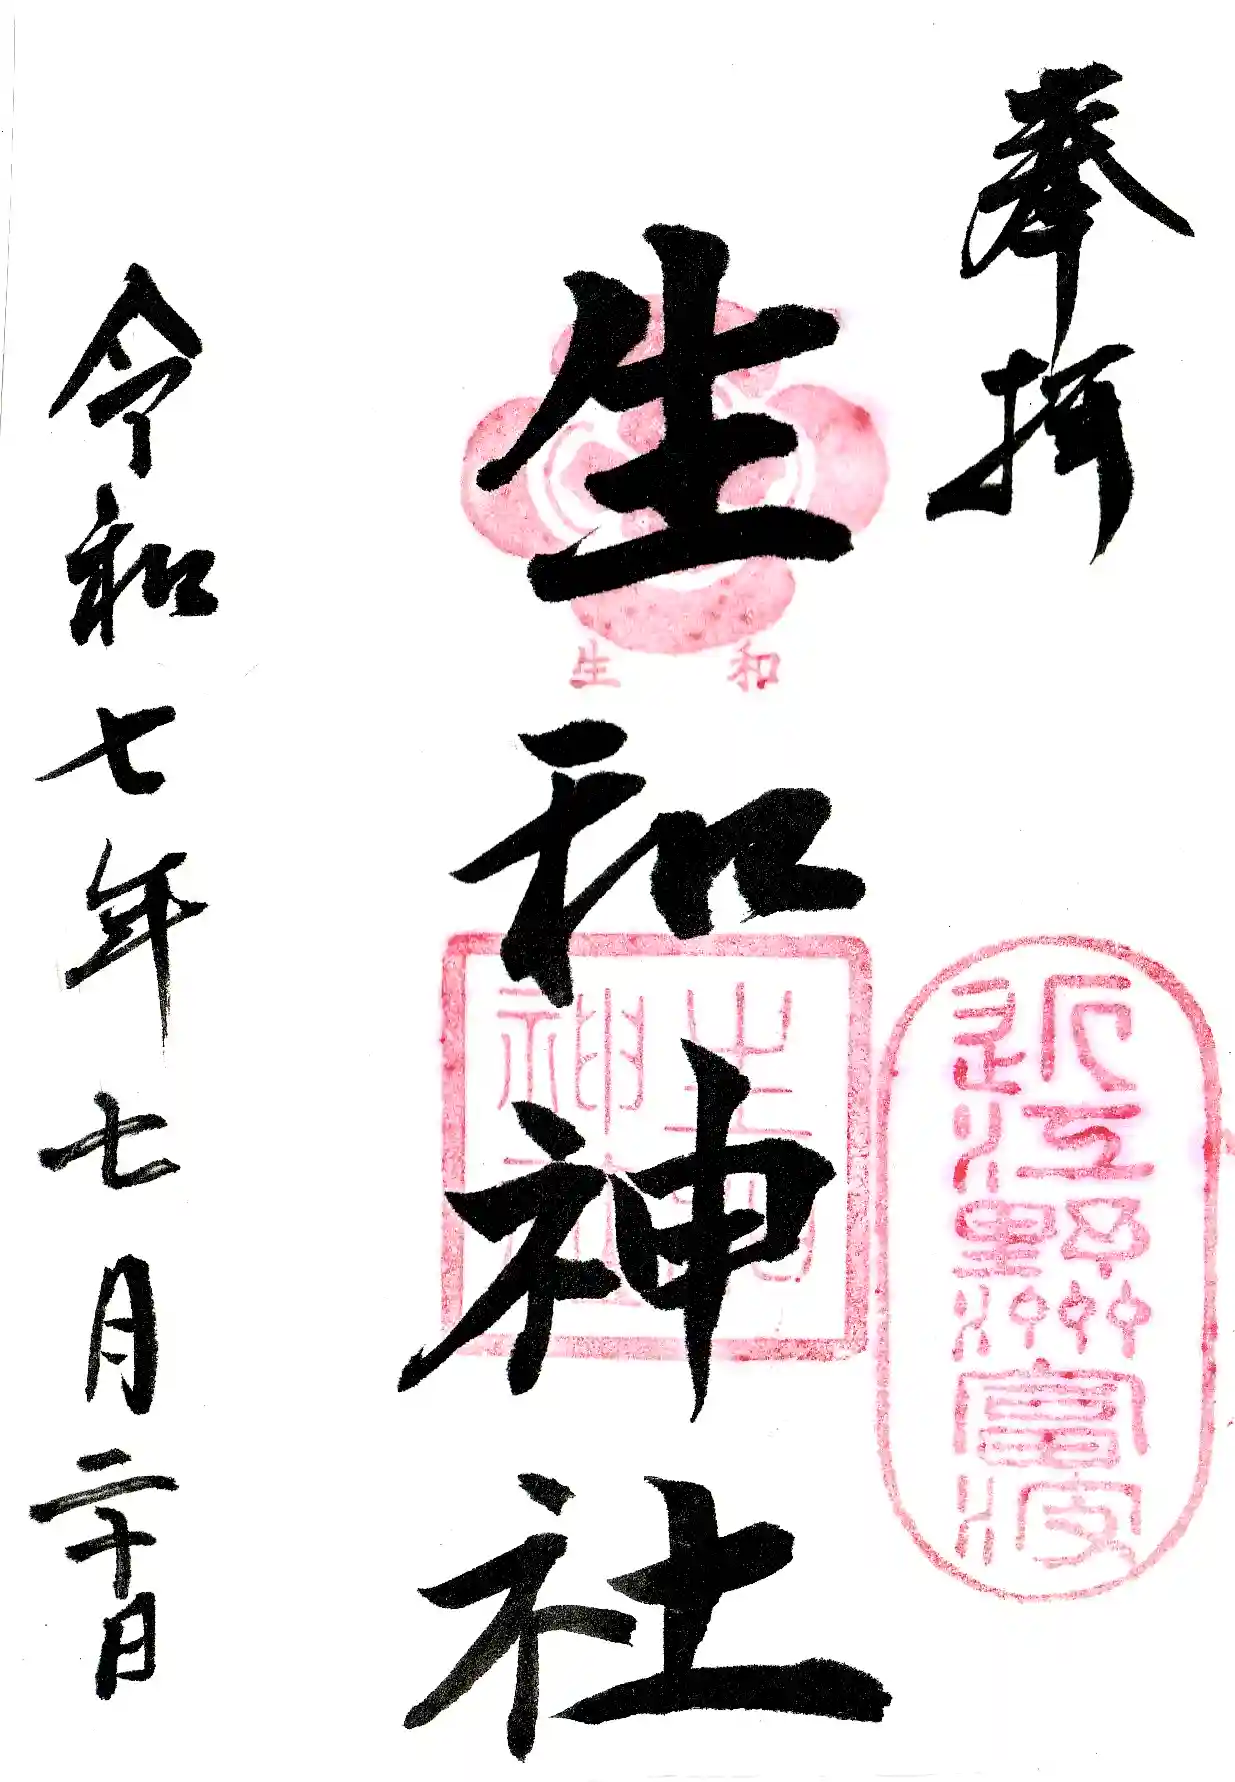 奉拝
近江野洲冨波
生和神社
生和
生和神社
令和七年七月二十日